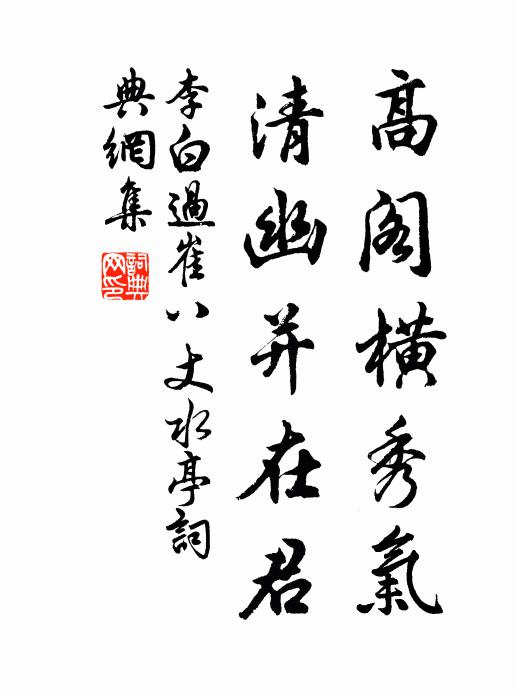 高閣橫秀氣
清幽并在君
李白過崔八丈水亭詞
典網集
詞典网印